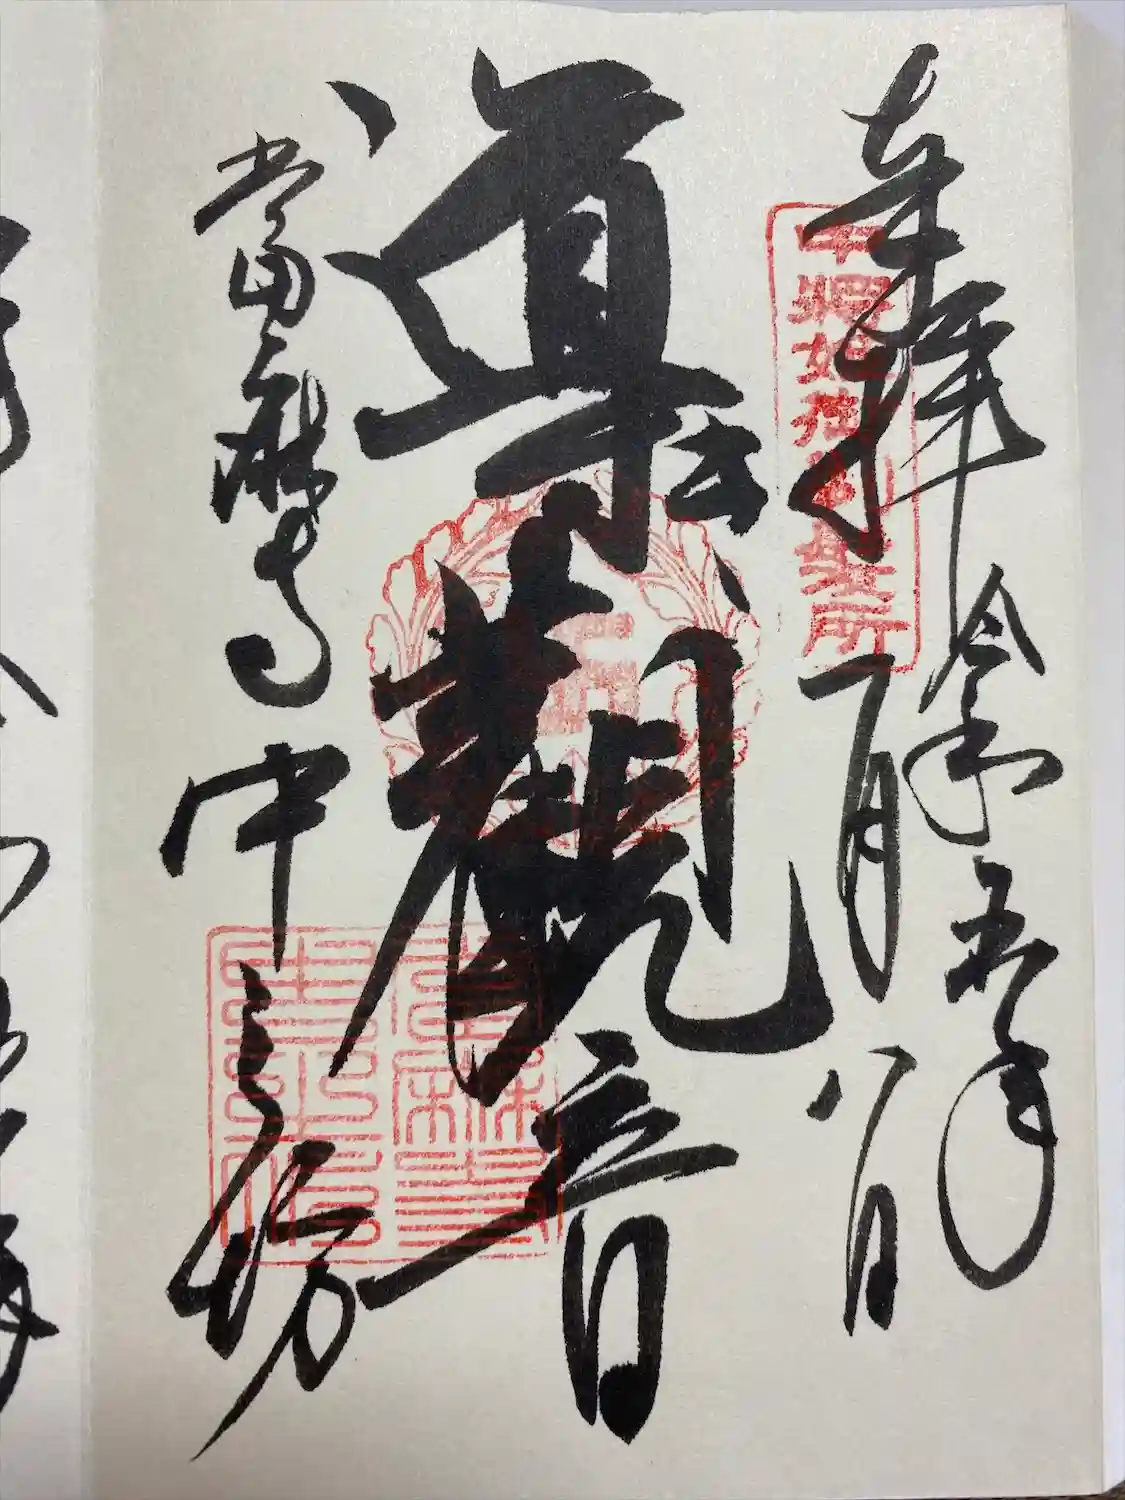 奉拝 令和五年
一月八日
中将姫御剃髪所
導き観音
當麻寺中之坊